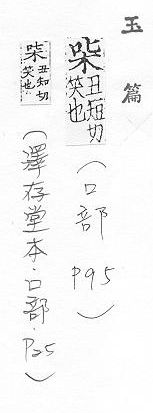 玉篇
丑短切
笑也
(口部 P95)
丑知切
笑也
(澤存堂本.口部.P25)